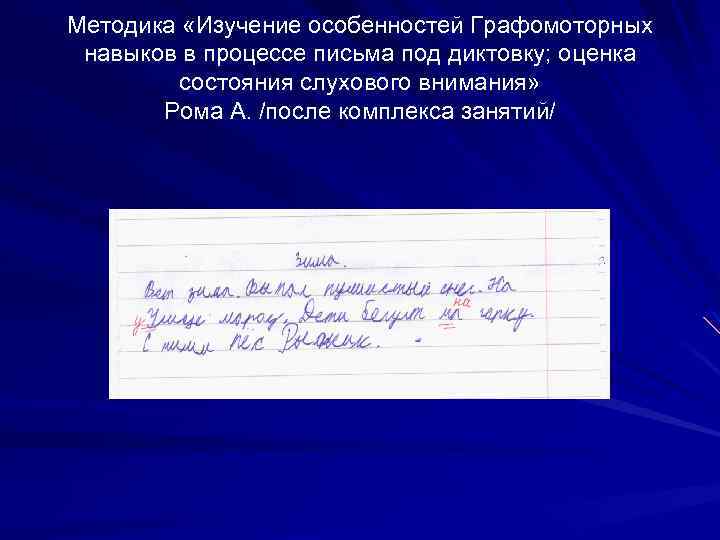 Методика «Изучение особенностей Графомоторных
навыков в процессе письма под диктовку; оценка
состояния слухового внимания»
Рома А. /после комплекса занятий/
Зима.
Вот зима. Выпал пушистый снег. На
у Улице мороз. Дети бегут на на горку.
С ними пёс Рыжик.